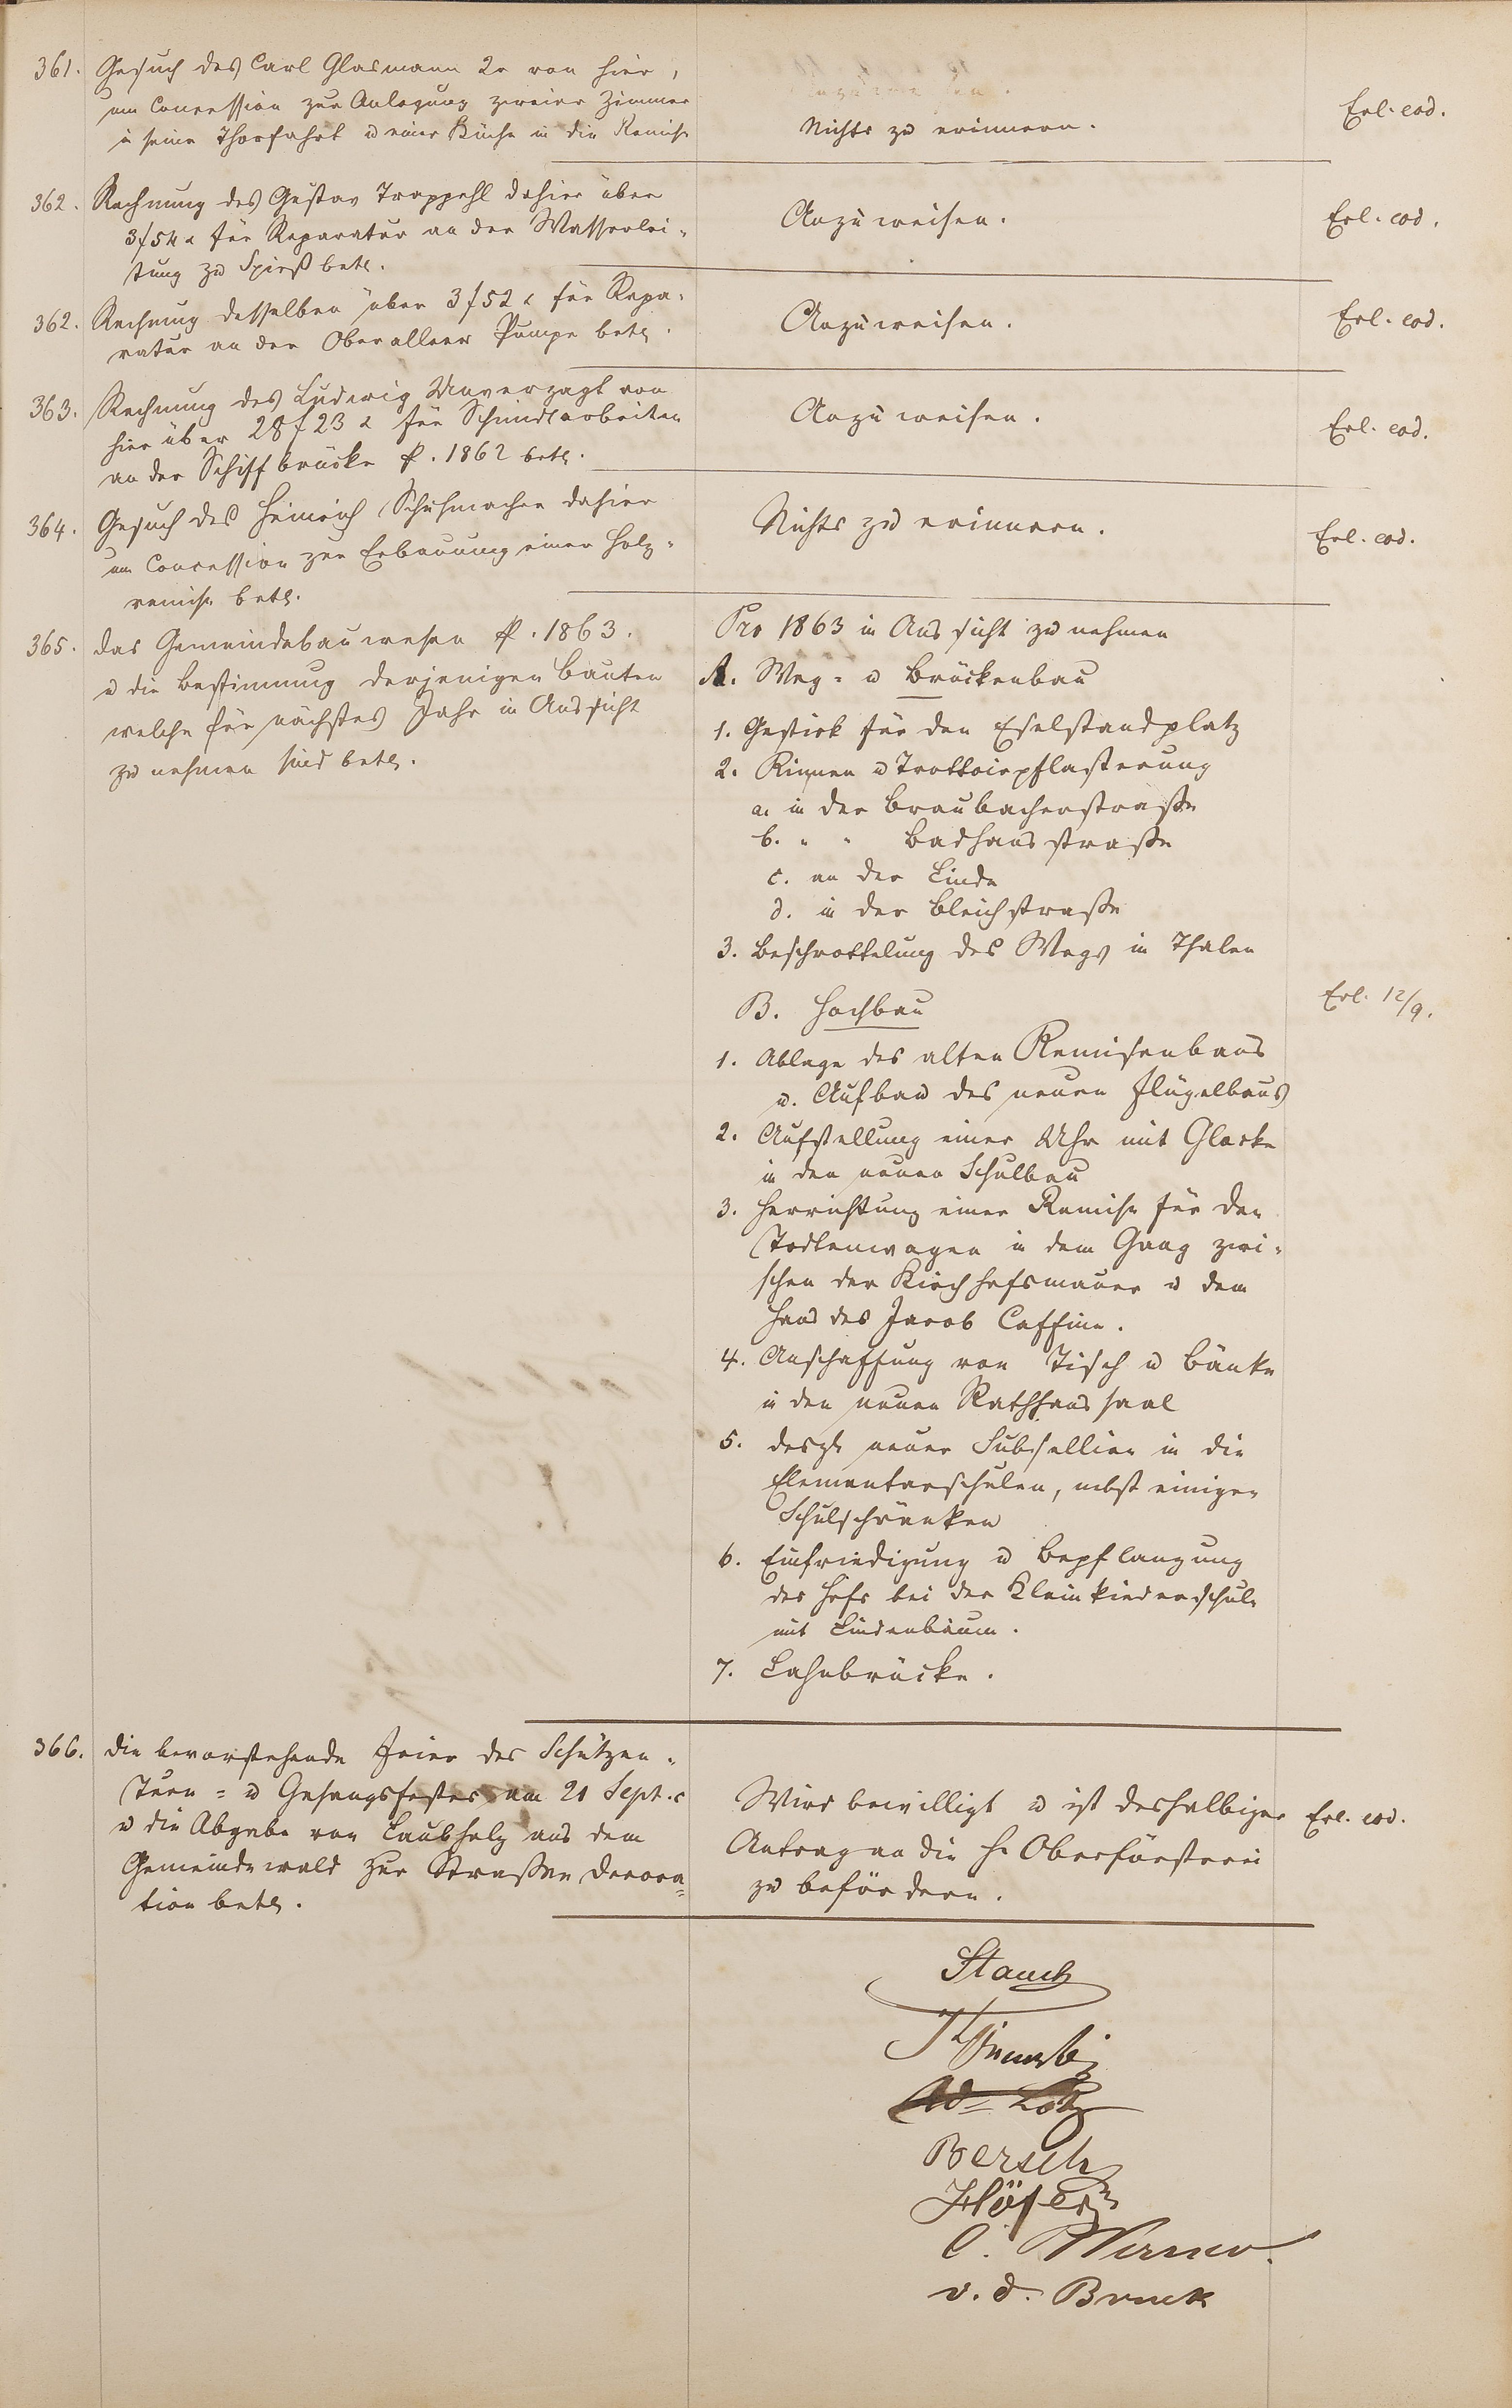 361. Gesuch des Carl Glasmann 2r von hier,
um Concession zur Anlegung zweier Zimmer
in seine Thorfahrt u einer Küche in die Remise
Nichts zu erinnern.
Erl. eod.
362. Rechnung des Gustav Trappehl dahier über
3 f 54 x für Reparatur an der Wasserlei-
tung zu Spieß betr.
Anzuweisen.
Erl. eod.
362. Rechnung desselben über 3 f 52 x für Repa-
ratur an der Oberalleer Pumpe betr.
Anzuweisen.
Erl. eod.
363. Rechnung des Ludwig Unverzagt von
hier über 28 f 23 x für Schmidtarbeiten
an der Schiffbrücke p. 1862 betr.
Anzuweisen.
Erl. eod.
364. Gesuch des Heinrich Schuhmacher dahier
um Concession zur Erbauung einer Holz-
remise betr.
Nichts zu erinnern.
Erl. eod.
365. das Gemeindebauwesen p. 1863.
u die Bestimmung derjenigen Bauten
welche für nächstes Jahr in Aussicht
zu nehmen sind betr.
Pro 1863 in Aussicht zu nehmen
A. Weg- u Brückenbau
1. Gestick für den Eselstandplatz
2. Rinnen u Trottoirpflasterung
a. in der Braubacherstraße
b. " " Badhausstraße
c. an der Linde
d. in der Bleichstraße
3. Beschrottelung des Wegs in Thalen
B. Hochbau
1. Ablage des alten Remisenbaus
u. Aufbau des neuen Flügelbaus
2. Aufstellung einer Uhr mit Glocke
in den neuen Schulbau
3. Herrichtung einer Remise für den
Todtenwagen in dem Gang zwi-
schen der Kirchhofsmauer u dem
Haus des Jacob Caffine.
4. Anschaffung von Tisch u Bänke
in den neuen Rathhaussaal
5. desgl neuer Subsellien in die
Elementarschulen, nebst einigen
Schulschränken
6. Einfriedigung u Bepflanzung
des Hofs bei der Kleinkinderschule
mit Lindenbäum.
7. Lahnbrücke.
Erl. 12/9.
366. die bevorstehende Feier des Schützen-
Turn- u Gesangsfestes am 21 Sept. c
u die Abgabe von Laubholz aus dem
Gemeindewald zur Straßen Decora-
tion betr.
Wird bewilligt u ist deshalbiger
Antrag an die H. Oberförsterei
zu befördern.
Erl. eod.
Stauch
Ad. Lotz
Bersch
Höfer
C. Werner.
v. d. Bruck